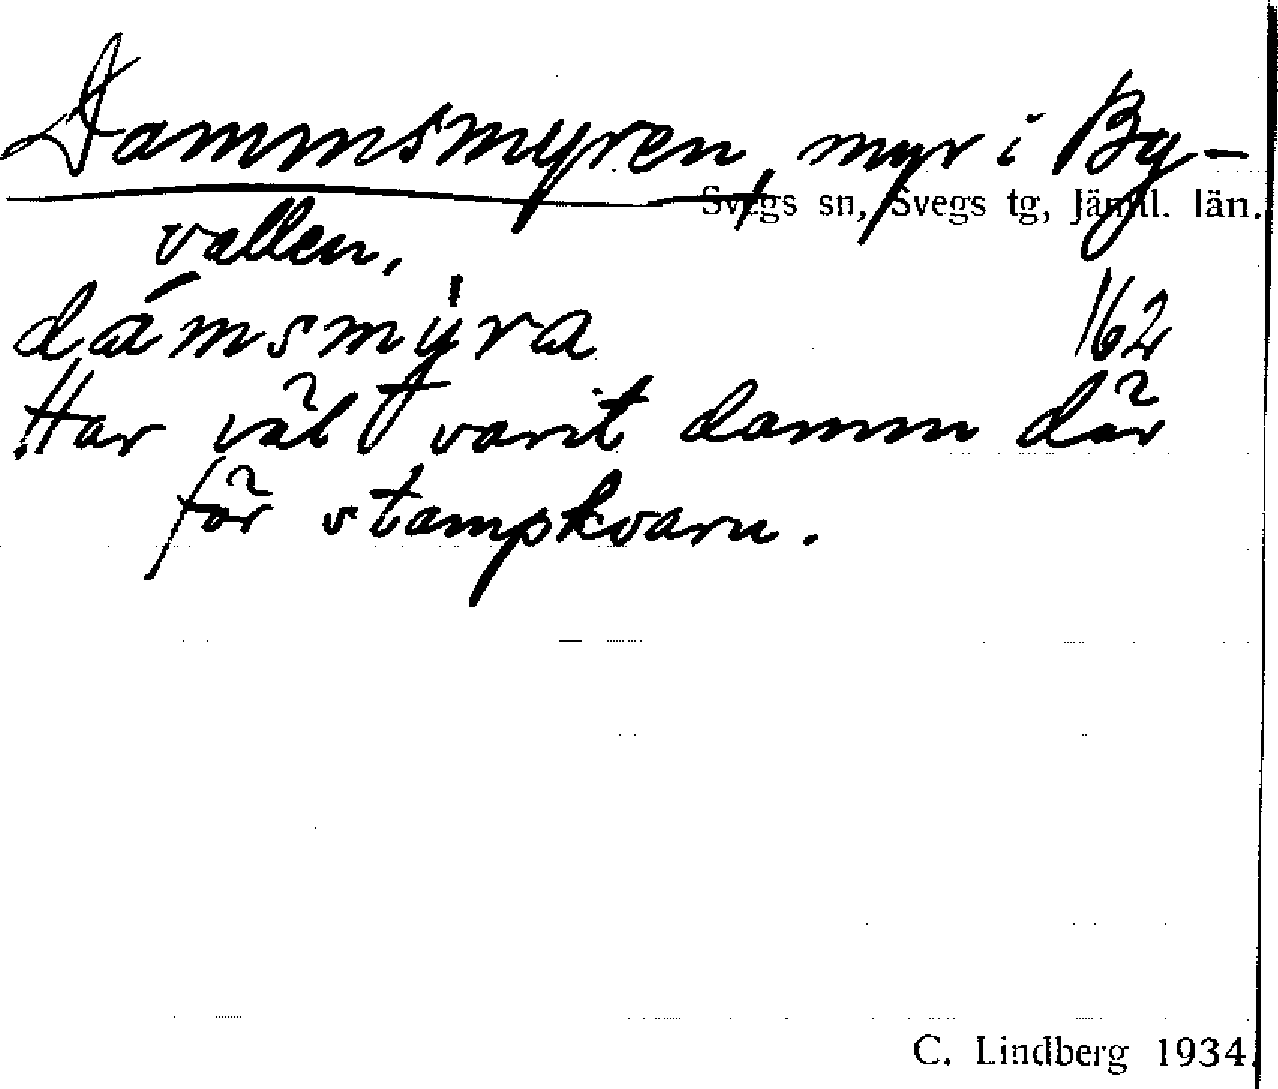 Dammsmyren, myr i By-
Svegs sn, Svegs tg, Jämtl. län.
vallen,
dámsmy̍ra 162
Har väl varit damm där
för stampkvarn.
C. Lindberg 1934.